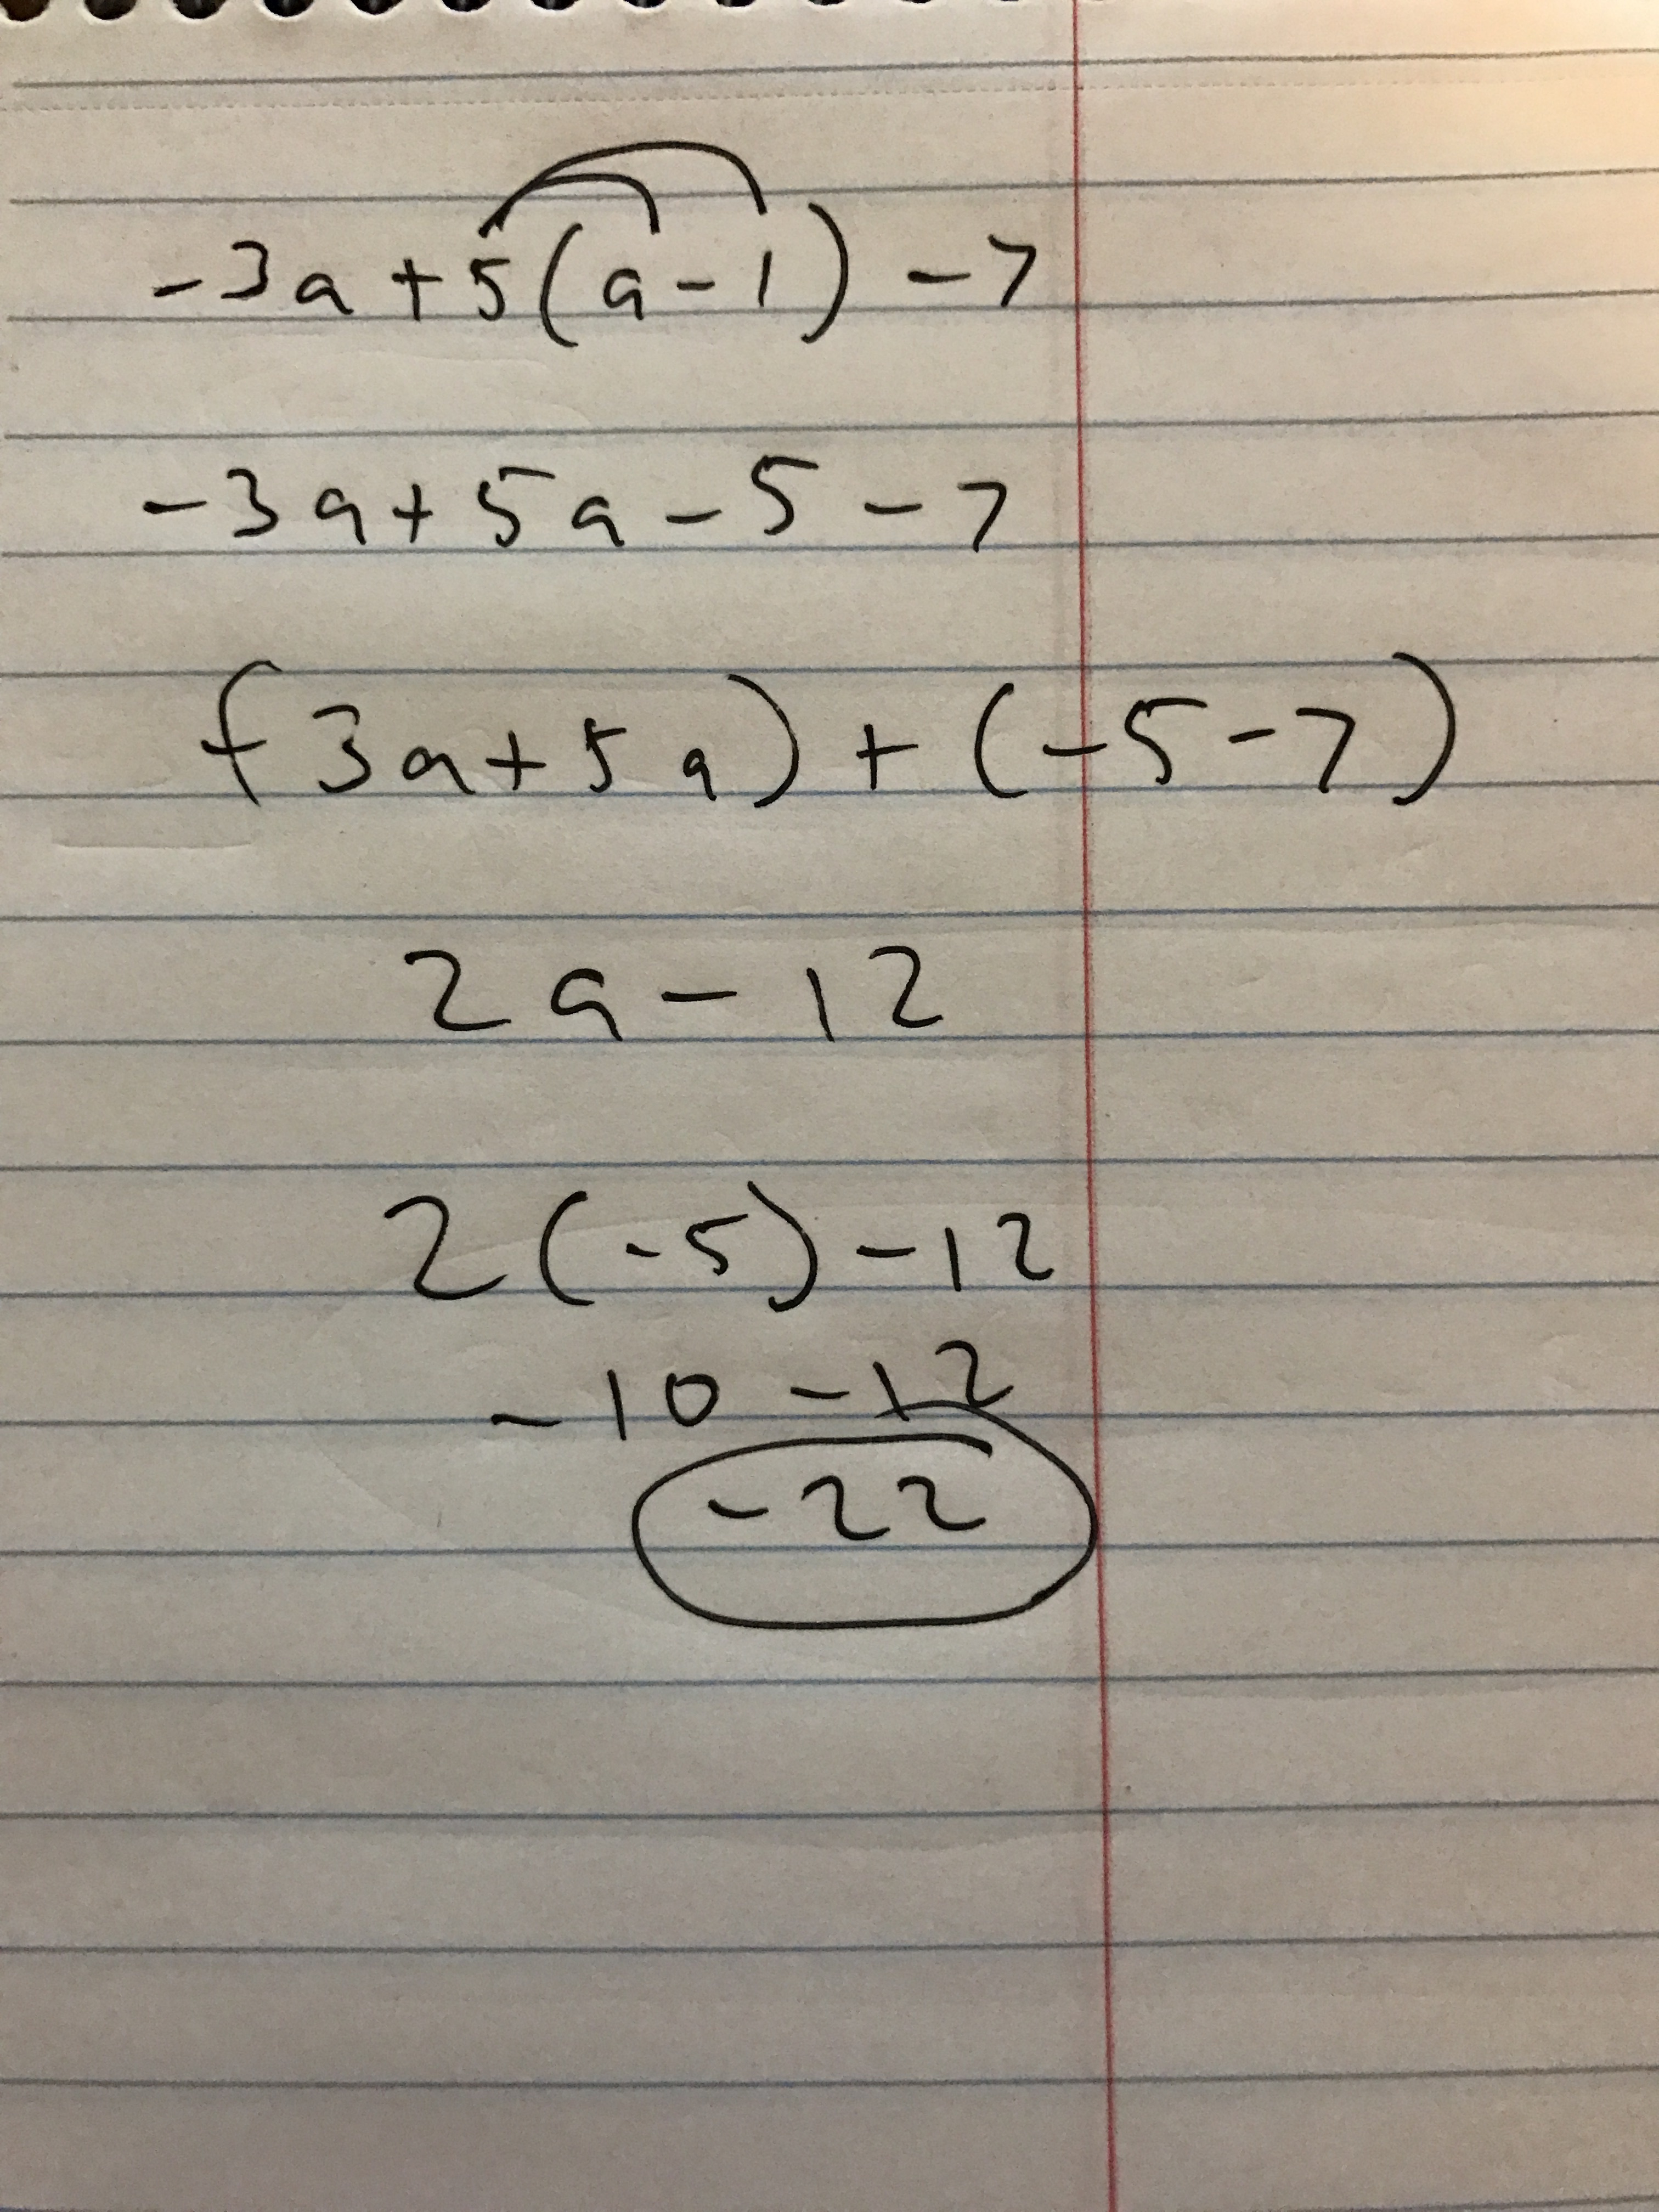 -3a+5(a-1)-7
-3a+5a-5-7
(-3a+5a)+(-5-7)
2a-12
2(-5)-12
-10-12
-22